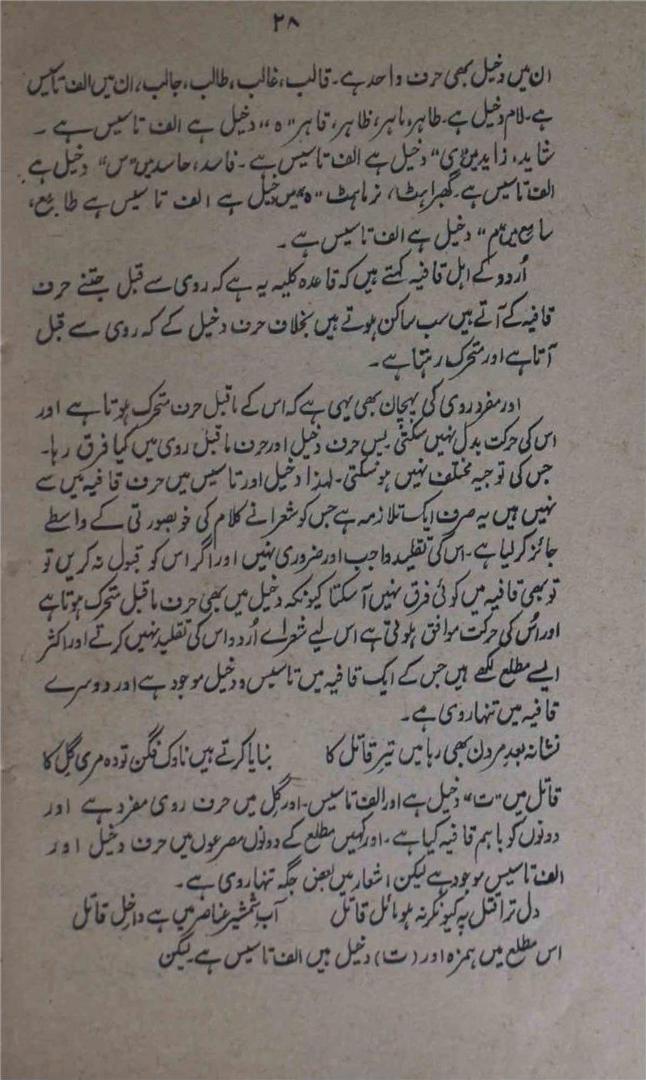 ۲۸
ان میں دخیل بھی حرف واحد ہے۔ قالب، غالب، طالب، جالب، ان میں الف تاسیس
ہے۔ لام دخیل ہے۔ طاہر، ماہر، ظاہر، قاہر "ہ" دخیل ہے الف تاسیس ہے۔
شاید، زاید میں "ی" دخیل ہے الف تاسیس ہے۔ فاسد، حاسد میں "س" دخیل ہے
الف تاسیس ہے۔ گھبراہٹ، نرماہٹ "ہ" میں دخیل ہے الف تاسیس ہے طابع،
سامع میں "م" دخیل ہے الف تاسیس ہے۔
اُردو کے اہل قافیہ کہتے ہیں کہ قاعدہ کلیہ یہ ہے کہ روی سے قبل جتنے حرف
قافیہ کے آتے ہیں سب ساکن ہوتے ہیں بخلاف حرف دخیل کے کہ روی سے قبل
آتا ہے اور متحرک رہتا ہے۔
اور مفرد روی کی پہچان بھی یہی ہے کہ اس کے ماقبل حرف متحرک ہوتا ہے اور
اس کی حرکت بدل نہیں سکتی پس حرف دخیل اور حرف ماقبل روی میں کیا فرق رہا۔
جس کی توجیہ مختلف نہیں ہوسکتی۔ لہٰذا دخیل اور تاسیس میں حرف قافیہ میں سے
نہیں ہیں یہ صرف ایک تلازمہ ہے جس کو شعرا نے کلام کی خوبصورتی کے واسطے
جائز کرلیا ہے۔ اس کی تقلید واجب اور ضروری نہیں اور اگر اس کو قبول نہ کریں تو
تو بھی قافیہ میں کوئی فرق نہیں آسکتا کیونکہ دخیل میں بھی حرف ماقبل متحرک ہوتا ہے
اور اُس کی حرکت موافق ہوتی ہے اس لیے شعرائے اُردو اس کی تقلید نہیں کرتے اور اکثر
ایسے مطلع لکھے ہیں جس کے ایک قافیہ میں تاسیس و دخیل موجود ہے اور دوسرے
قافیہ میں تنہا روی ہے۔
نشانہ بعدِ مردن بھی رہا میں تیرِ قاتل کا بنایا کرتے ہیں ناوک فگن تودہ مری گِل کا
قاتل میں "ت" دخیل ہے اور الف تاسیس۔ اور گِل میں حرف روی مفرد ہے اور
دونوں کو باہم قافیہ کیا ہے۔ اور کہیں مطلع کے دونوں مصرعوں میں حرف دخیل اور
الف تاسیس موجود ہے لیکن اشعار میں بعض جگہ تنہا روی ہے۔
دل ترا قتل پہ کیونکر نہ ہو مائل قاتل آب شمشیر عناصر میں ہے داخل قاتل
اس مطلع میں ہمزہ اور (ت) دخیل ہیں الف تاسیس ہے لیکن